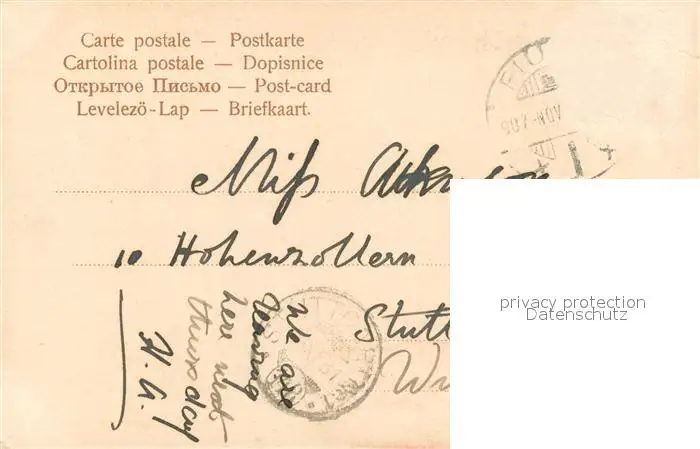 Carte postale — Postkarte
Cartolina postale — Dopisnice
Открытое Письмо — Post-card
Levelező-Lap — Briefkaart.
907-NOV
Miss
10 Hohenzollern
Stutt
We are
leaving
here
thursday
H. A.
privacy protection
Datenschutz